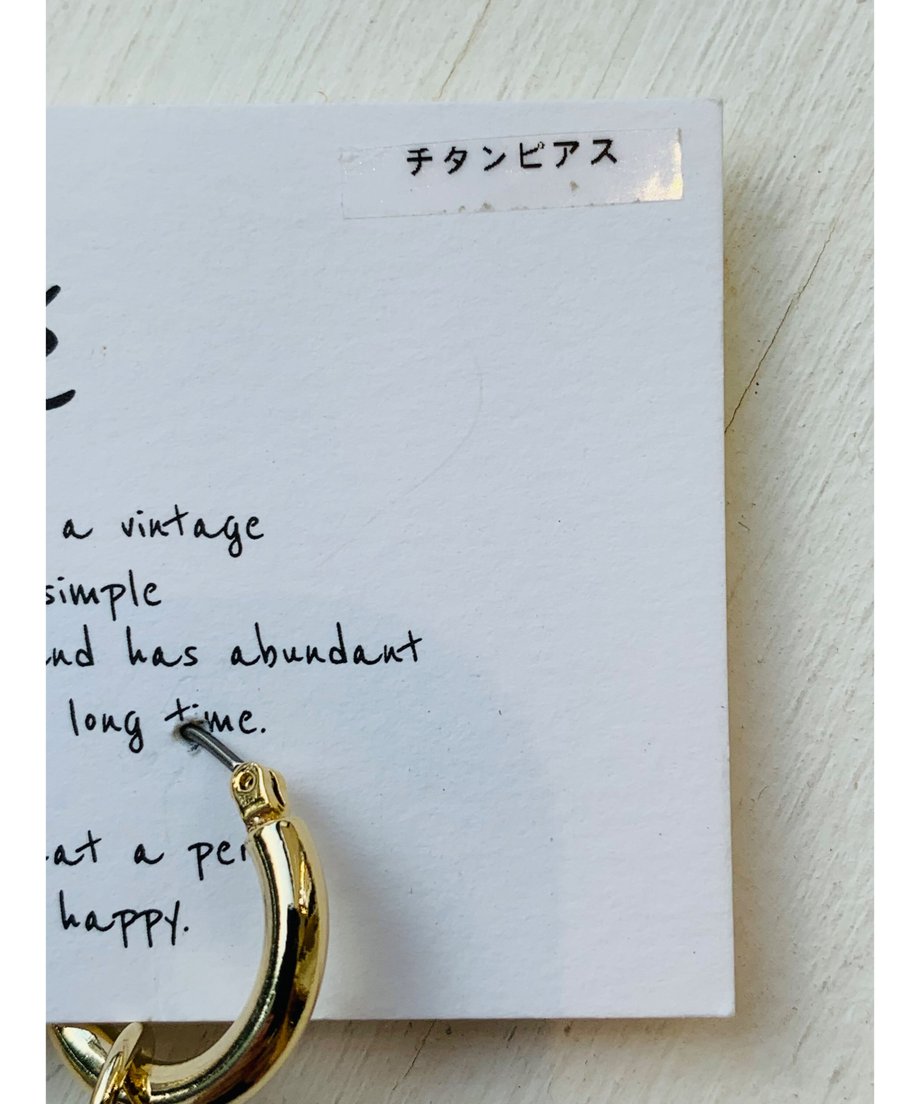 チタンピアス
a vintage
simple
and has abundant
long time.
at a per
happy.